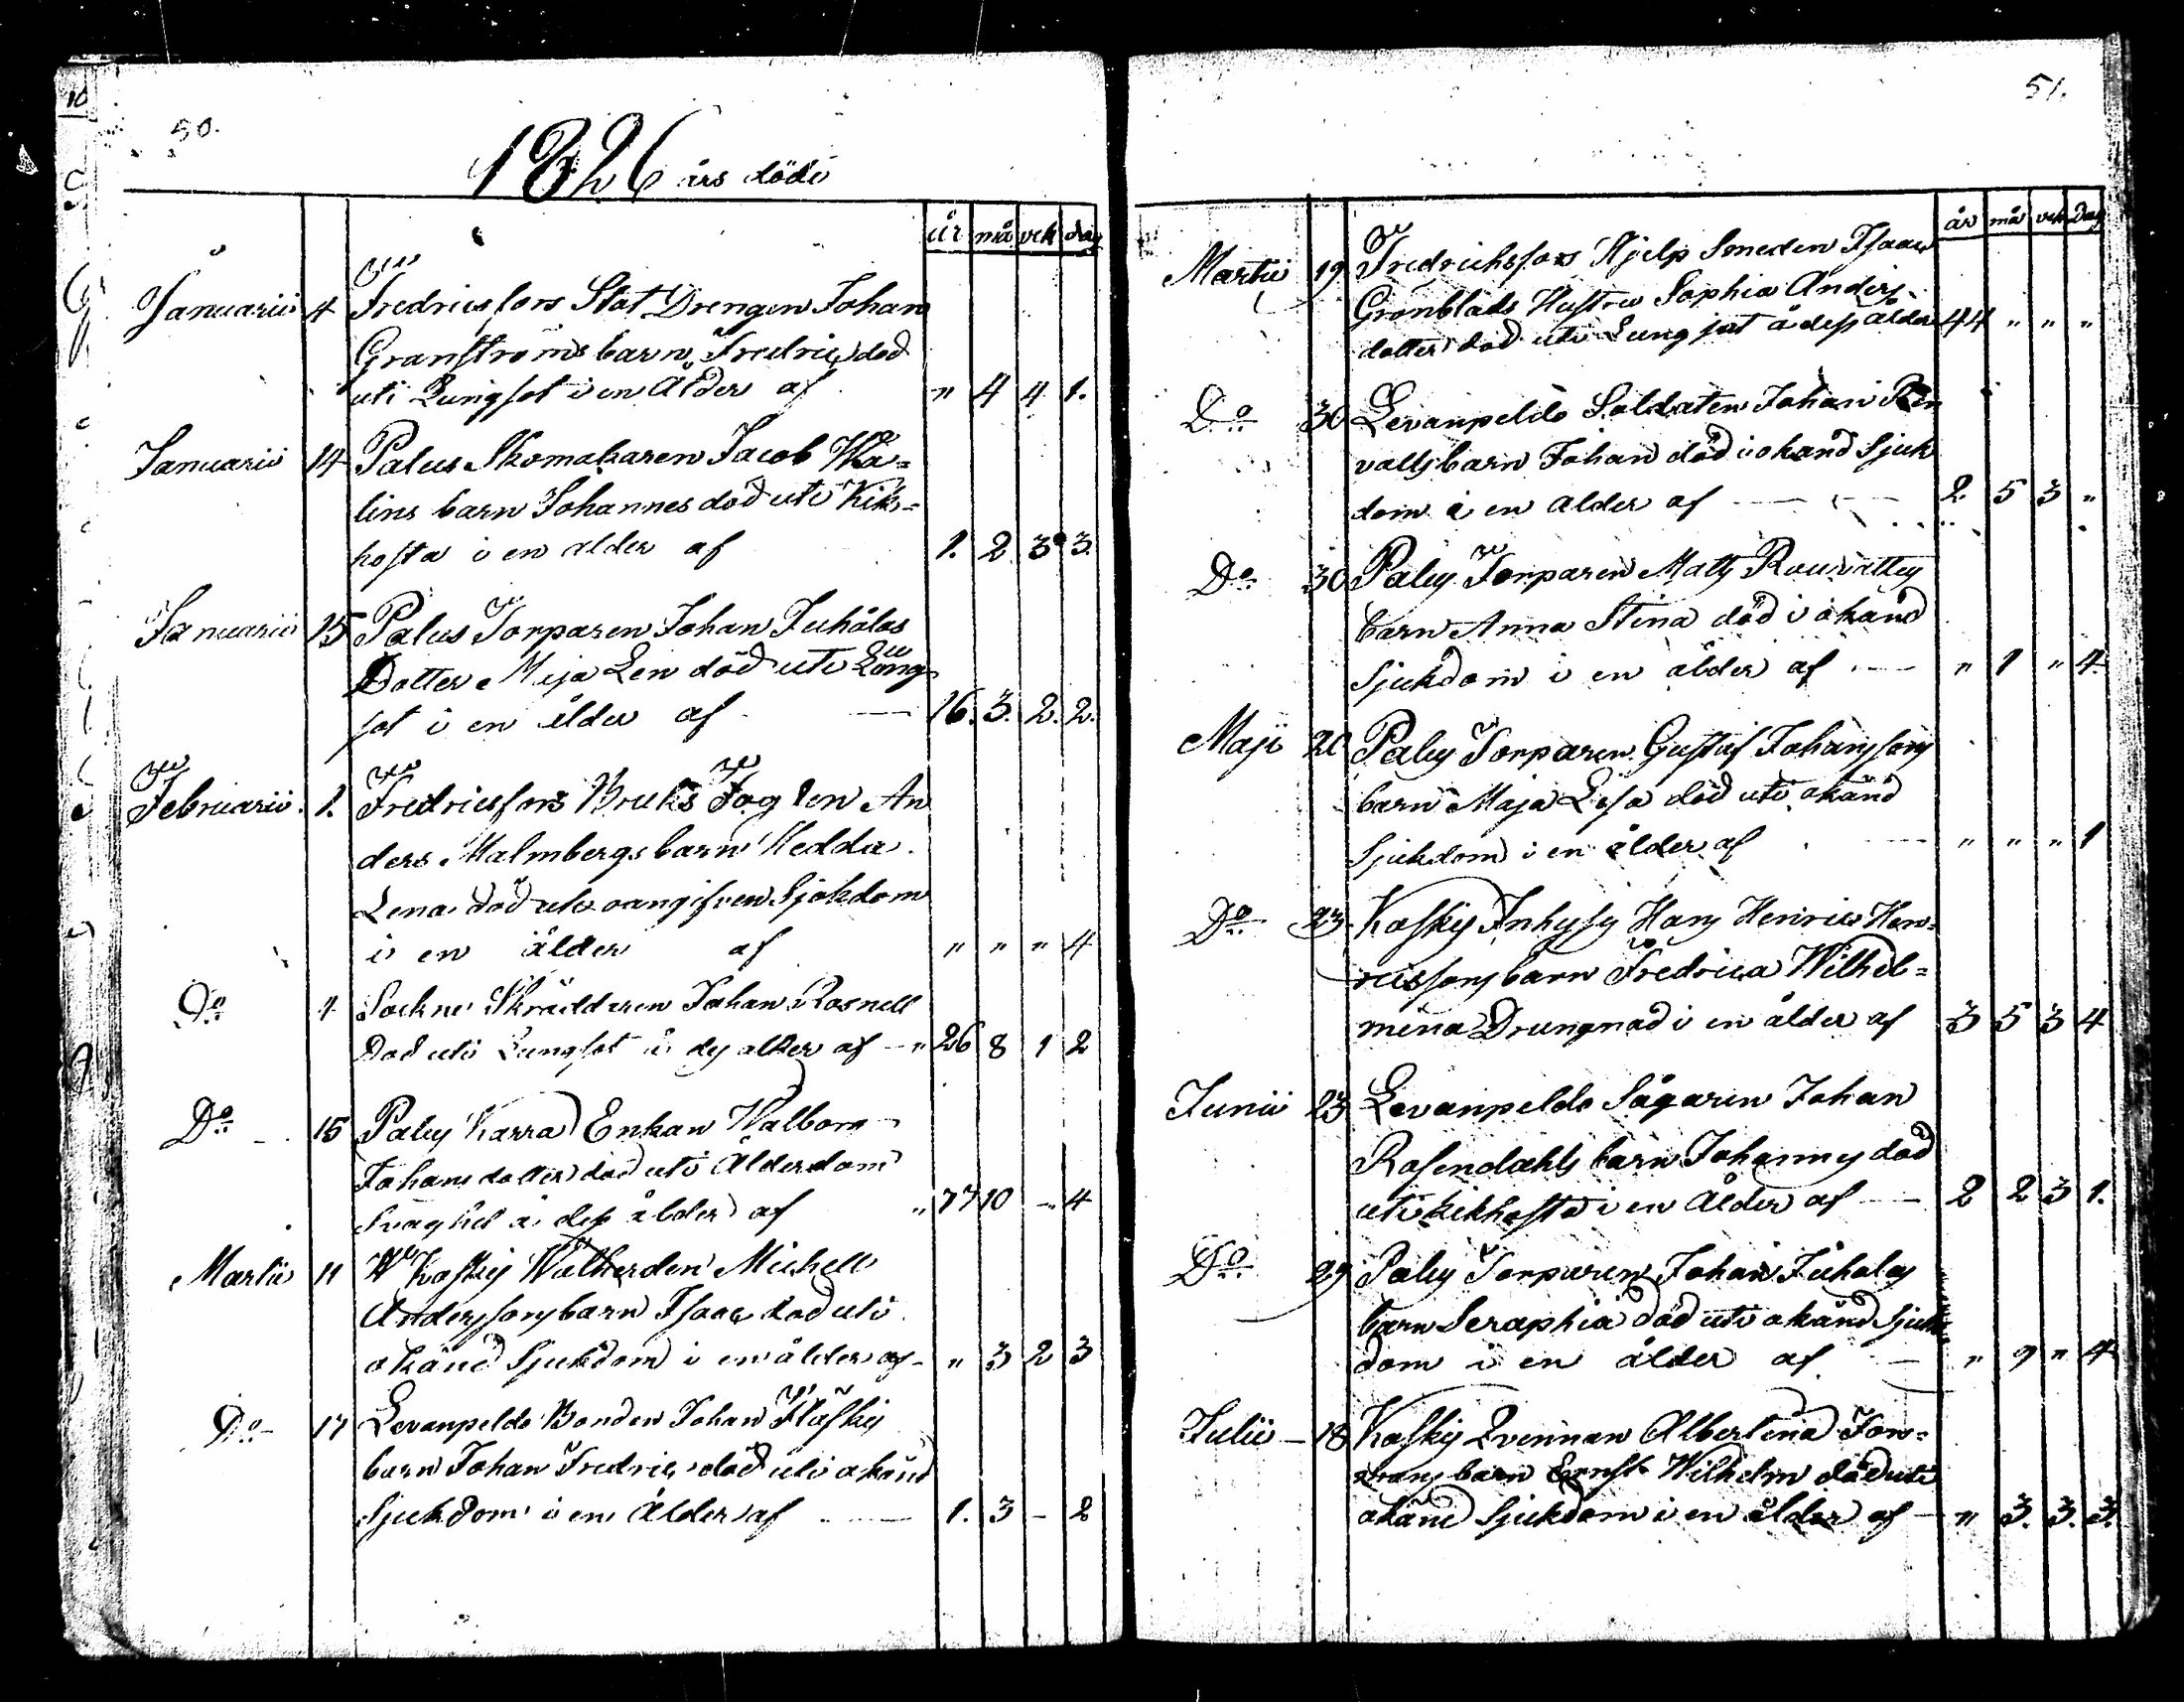 50.
1826 års döde
år må vek dag
Januarii 4 Fredricsfors Stat Drengen Johan
Granströms barn Fredric död
uti Lungsot i en Ålder af " 4 4 1.
Januarii 14 Palus Skomakaren Jacob Wa=
lins barn Johannes död uti Kik=
hosta i en ålder af 1. 2 3 3.
Januarii 15 Palus Torparen Johan Juhålas
Dotter Maja Len död uti Lung
sot i en ålder af 16. 3. 2. 2.
Februarii 1. Fredricsfors Bruks Fogden An
ders Malmbergs barn Hedda
Lena död uti oangifven Sjukdom
i en ålder af " " " 4
Do 4 Sockne Skräddaren Johan Rosnell
Död uti Lungsot à ds ålder af " 26 8 1 2
Do 15 Palus Karra Enkan Walborg
Johans dotter död uti Ålderdoms
Svaghet à dess ålder af " 77 10 - 4
Martii 11 Koskis Michell
Anderssons barn Isaac död uti
okänd Sjukdom i en ålder af " 3 2 3
Do 17 Levanpeldo Bonden Johan
barn Johan Fredric död uti okänd
Sjukdom i en Ålder af 1. 3 - 2
51.
år må vek dag
Martii 19 Fredrichsfors Hjelp Smeden Isaac
Grönblads Hustru Sophia Anders
dotter död uti Lungsot à dess ålder 44 " " "
Do 30 Levanpeldo Soldaten Johan Ren
valls barn Johan död i okänd Sjuk
dom i en ålder af 2 5 3 "
Do 30 Palus Torparen Matts
barn Anna Stina död i okänd
Sjukdom i en ålder af " 1 " 4
Maji 20 Palus Torparen Gustaf Johanssons
barn Maja Lisa död uti okänd
Sjukdom i en ålder af " " " 1
Do 23 Koskis Inhyses Hans Henric Hen=
ricssons barn Fredrica Wilhel=
mina Drunknad i en ålder af 3 5 3 4
Junii 23 Levanpeldo Sågaren Johan
Rosendahls barn Johannes död
uti kikhosta i en Ålder af 2 2 3 1.
Do 29 Palus Torparen Johan Juhalas
barn Seraphia död uti okänd Sjuk
dom i en ålder af " 9 " 4
Julii 18 Koskis Qvinnan Albertina
barn Ernst Wilhelm död uti
okänd Sjukdom i en ålder af " 3. 3. 3.